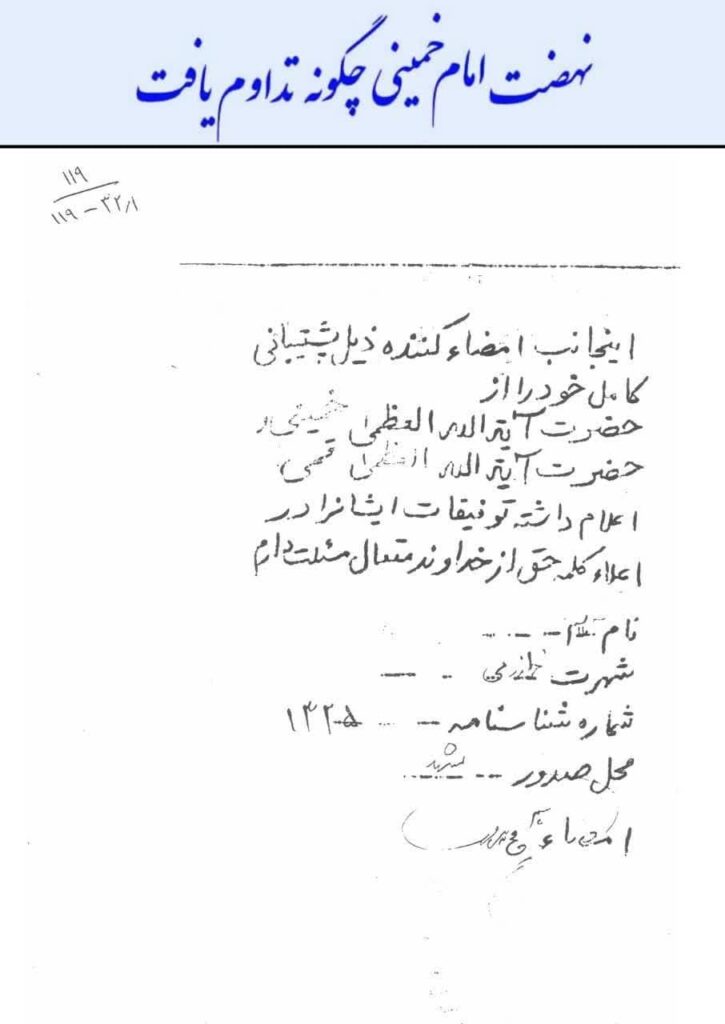 نهضت امام خمینی چگونه تداوم یافت
۱۱۹
۱۱۹ - ۳۲/۱
اینجانب امضاء کننده ذیل پشتیبانی
کامل خود را از
حضرت آیة الله العظمی خمینی و
حضرت آیة الله العظمی قمی
اعلام داشته توفیقات ایشانرا در
اعلاء کلمه حق از خداوند متعال مسئلت دارم
نام
شهرت
شماره شناسنامه ۱۳۲۰۵
محل صدور مشهد
امضاء